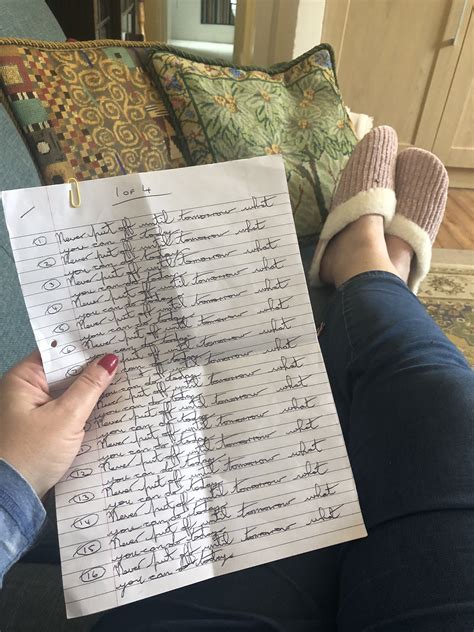 1 of 4
(1) Never put off until tomorrow what
you can do today.
(2) Never put off until tomorrow what
you can do today.
(3) Never put off until tomorrow what
you can do today.
(4) Never put off until tomorrow what
you can do today.
(5) Never put off until tomorrow what
you can do today.
(6) Never put off until tomorrow what
you can do today.
Never put off until tomorrow what
you can do today.
put off until tomorrow what
you can do today.
Never put off until tomorrow what
you can do today.
Never put off until tomorrow what
you can do today.
Never put off until tomorrow what
you can do today.
(12) Never put off until tomorrow what
you can do today.
(13) Never put off until tomorrow what
you can do today.
(14) Never put off until tomorrow what
you can do today.
(15) Never put off until tomorrow what
you can do today.
(16) Never put off until tomorrow what
you can do today.